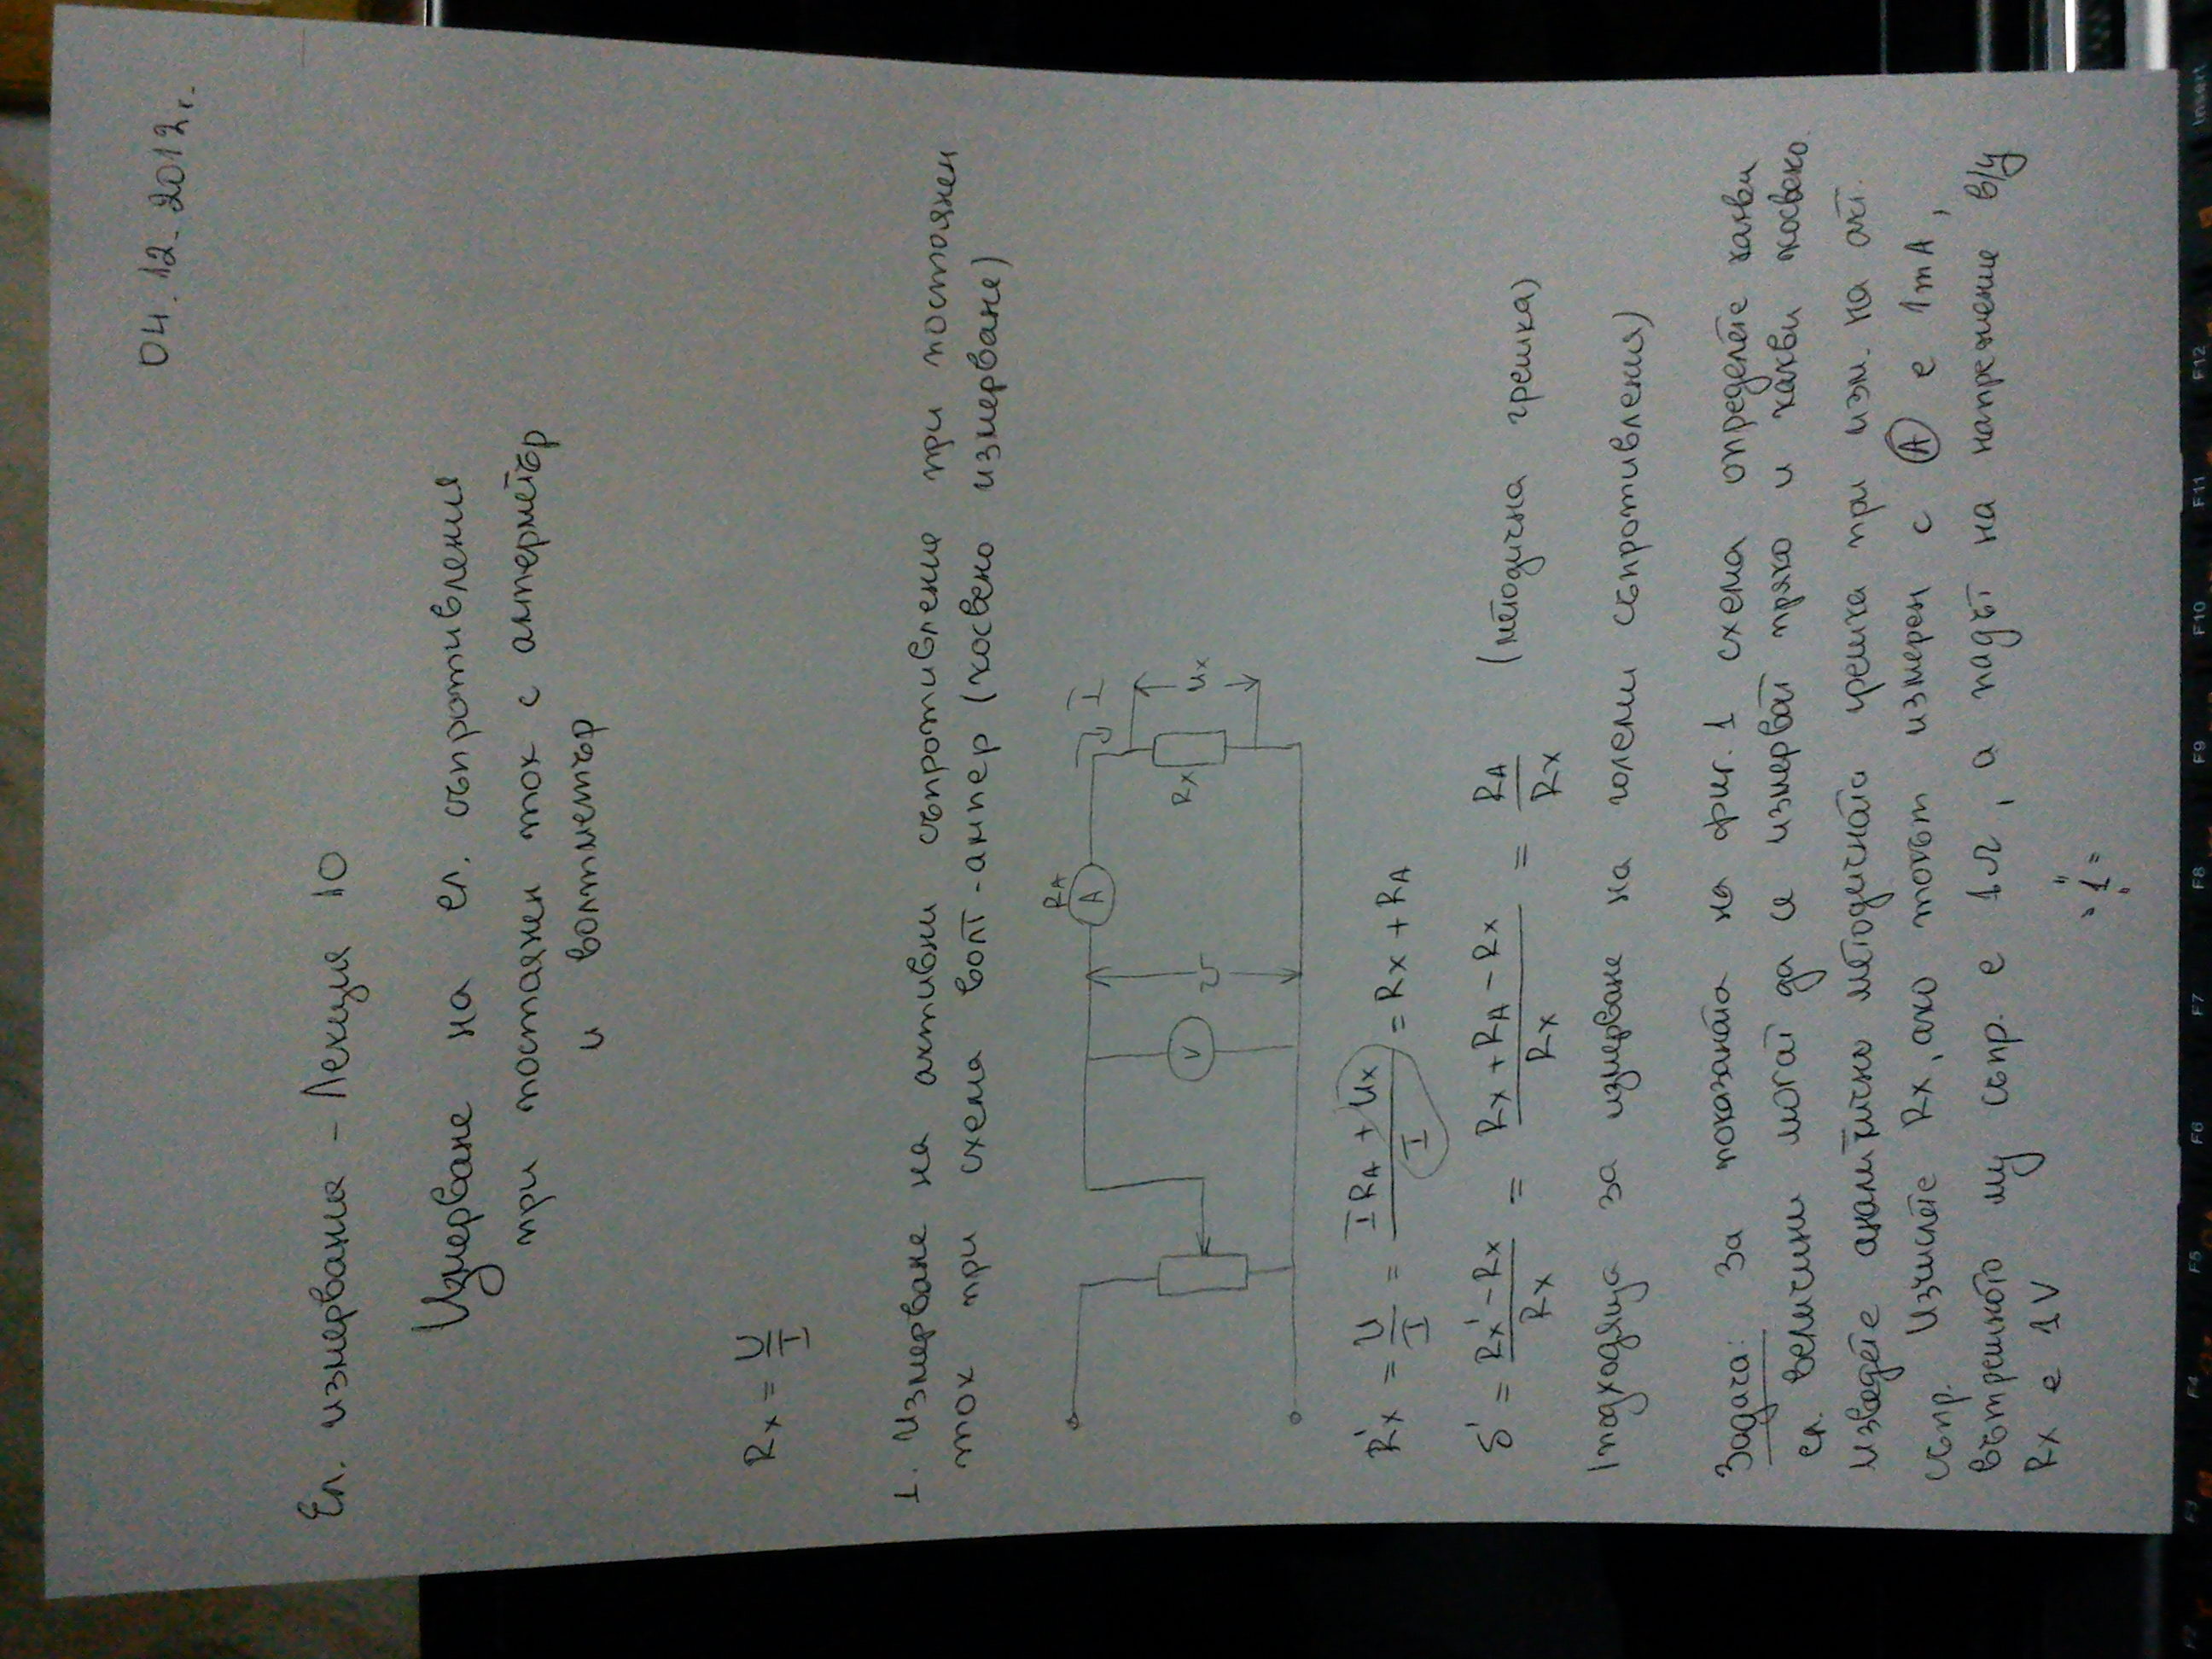 04.12.2012г.
Ел. измервания - Лекция 10
Измерване на ел. съпротивления
при постоянен ток с амперметър
и волтметър
Rx = U/I
1. Измерване на активни съпротивление при постоянен
ток при схема волт-ампер (косвено измерване)
RA
A
I
V
U
Rx
Ux
R'x = U/I = (IRA + Ux)/I = Rx + RA
δ' = (Rx' - Rx)/Rx = (Rx + RA - Rx)/Rx = RA/Rx (методична грешка)
Подходяща за измерване на големи съпротивления)
Задача: За показаната на фиг. 1 схема определете какви
ел. величини могат да се измерват пряко и какви косвено.
Изведете аналитично методичната грешка при изм. на акт.
съпр. Изчислете Rx, ако токът измерен с A е 1mA,
вътрешното му съпр. е 1Ω, а падът на напрежение в/у
Rx е 1V
"1"
F2 F3 F4 F5 F6 F7 F8 F9 F10 F11 F12 Insert